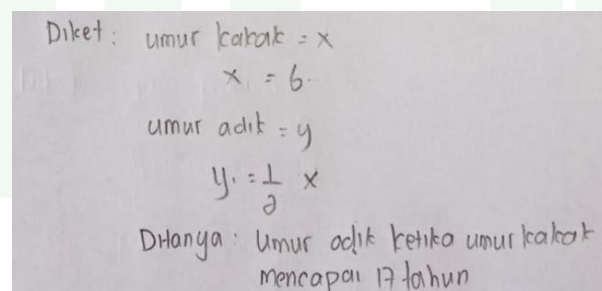 Diket : umur kakak = x
x = 6.
umur adik = y
y. = 1/2 x
Ditanya : Umur adik ketika umur kakak
mencapai 17 tahun